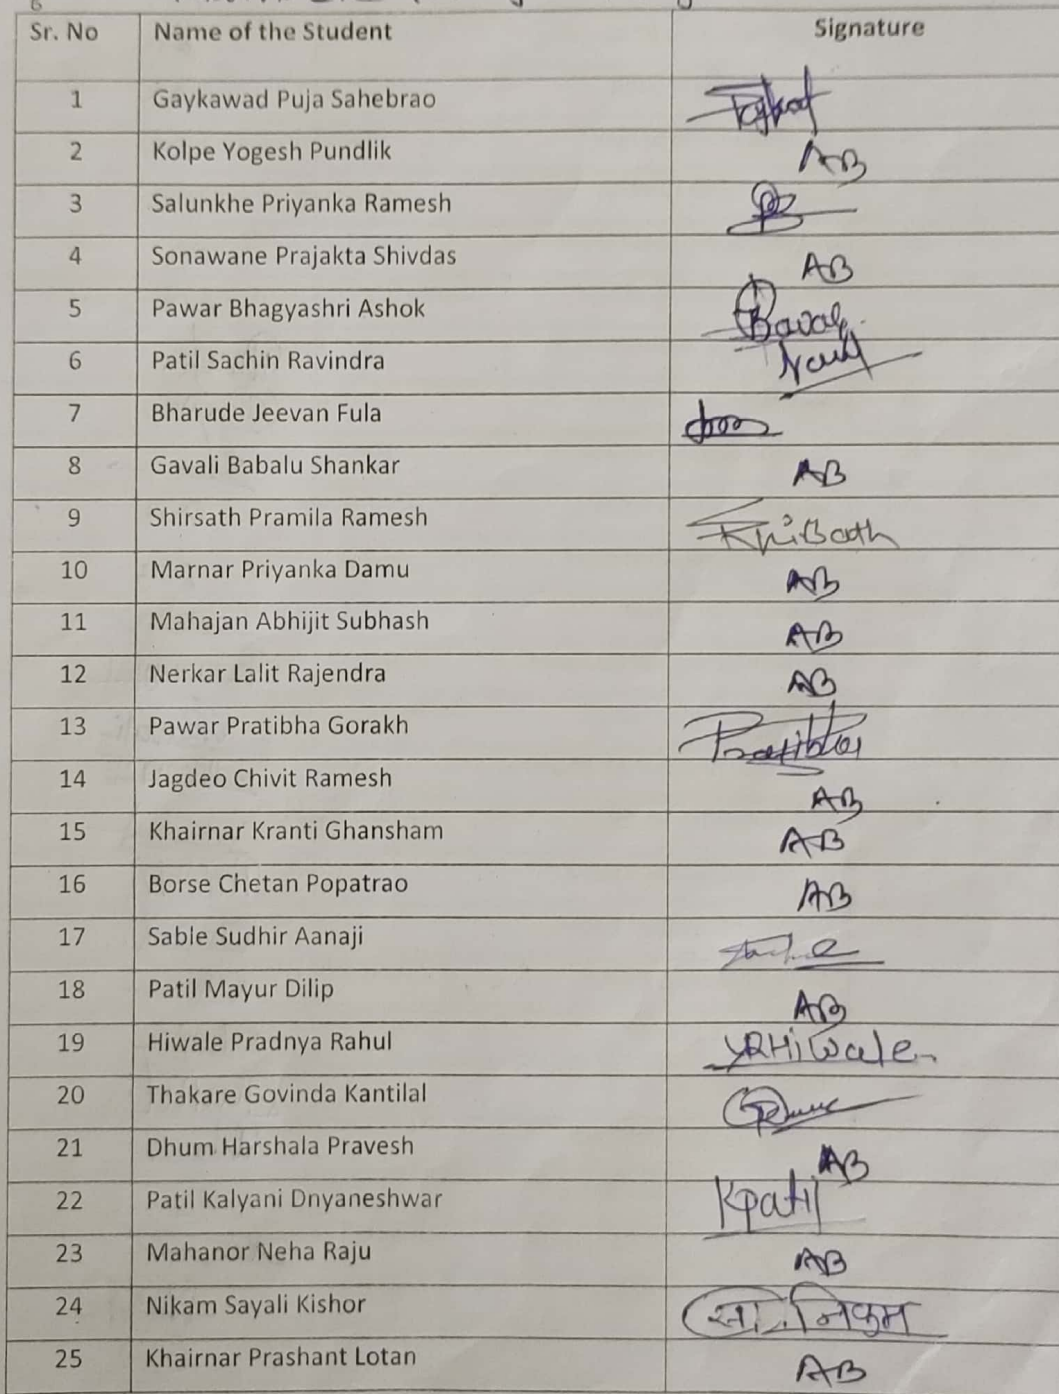 Sr. No Name of the Student Signature
1 Gaykawad Puja Sahebrao
2 Kolpe Yogesh Pundlik AB
3 Salunkhe Priyanka Ramesh
4 Sonawane Prajakta Shivdas AB
5 Pawar Bhagyashri Ashok
6 Patil Sachin Ravindra
7 Bharude Jeevan Fula
8 Gavali Babalu Shankar AB
9 Shirsath Pramila Ramesh
10 Marnar Priyanka Damu AB
11 Mahajan Abhijit Subhash AB
12 Nerkar Lalit Rajendra AB
13 Pawar Pratibha Gorakh
14 Jagdeo Chivit Ramesh AB
15 Khairnar Kranti Ghansham AB
16 Borse Chetan Popatrao AB
17 Sable Sudhir Aanaji
18 Patil Mayur Dilip AB
19 Hiwale Pradnya Rahul
20 Thakare Govinda Kantilal
21 Dhum Harshala Pravesh AB
22 Patil Kalyani Dnyaneshwar Kpatil
23 Mahanor Neha Raju AB
24 Nikam Sayali Kishor निकम
25 Khairnar Prashant Lotan AB